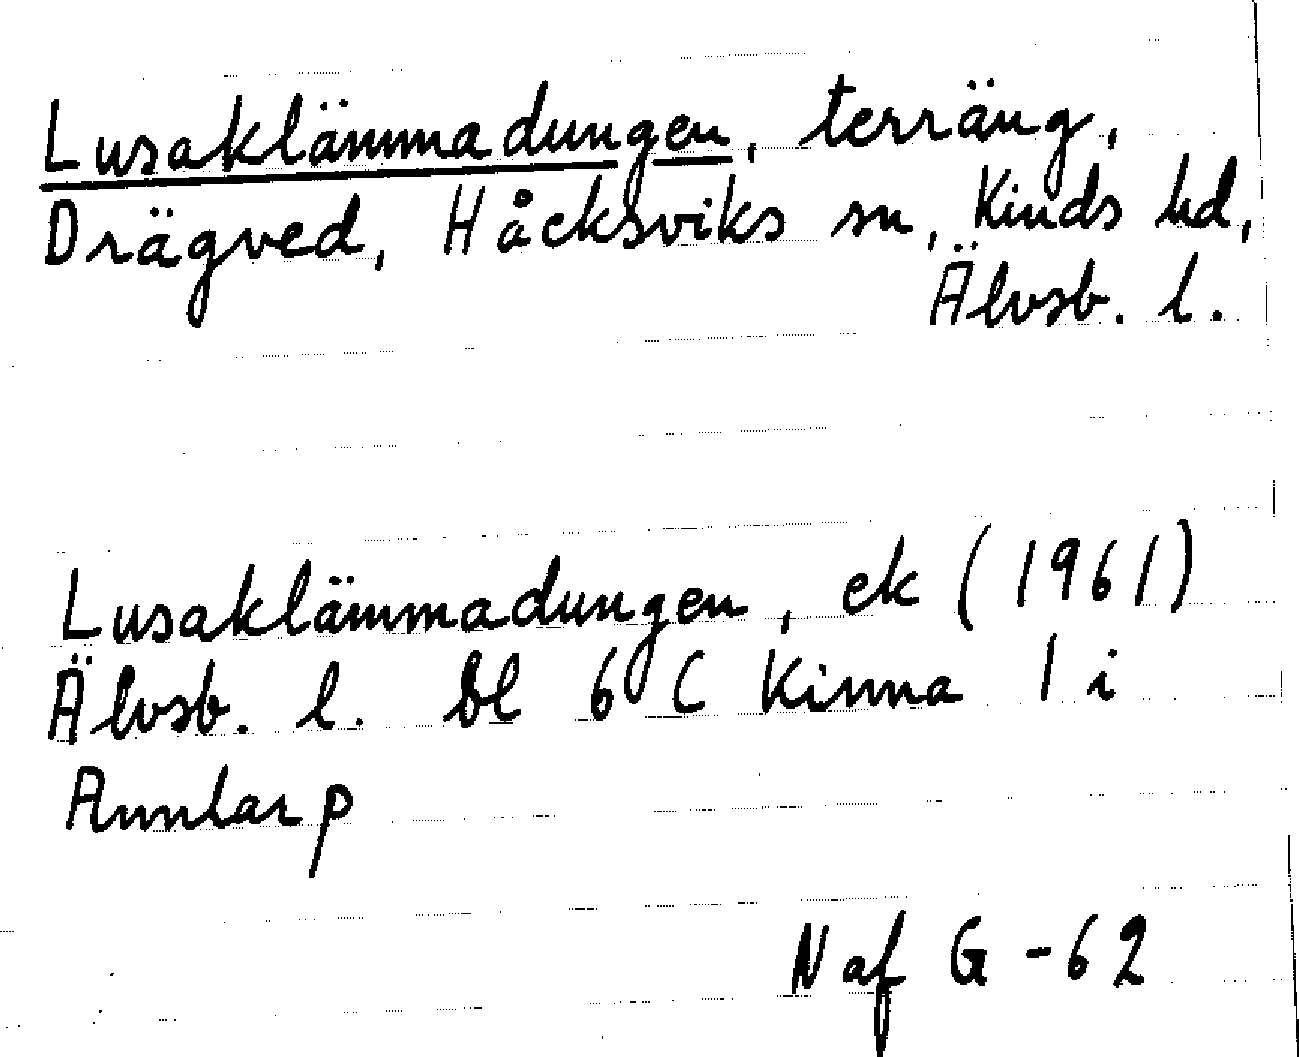 Lusaklämmadungen, terräng,
Drägved, Håcksviks sn, Kinds hd,
Älvsb. l.
Lusaklämmadungen, ek (1961)
Älvsb. l. Bl 6 C Kinna 1 i
Annlarp
Naf G -62